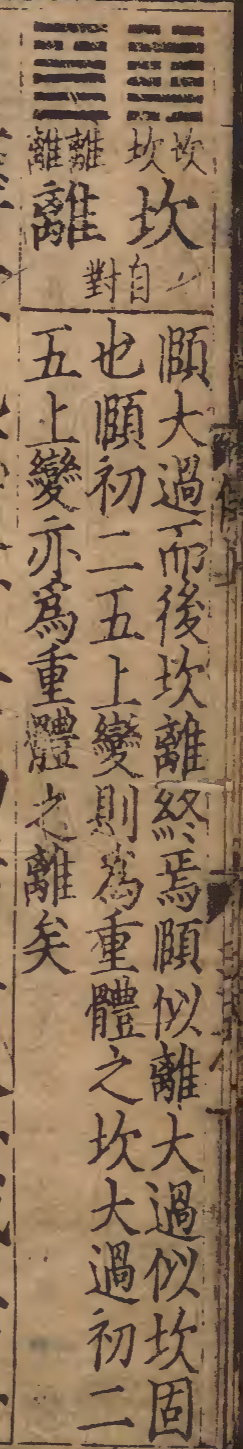 坎坎 坎
離離 離
自對
頤大過而後坎離終焉頤似離大過似坎固
也頤初二五上變則為重體之坎大過初二
五上變亦為重體之離矣